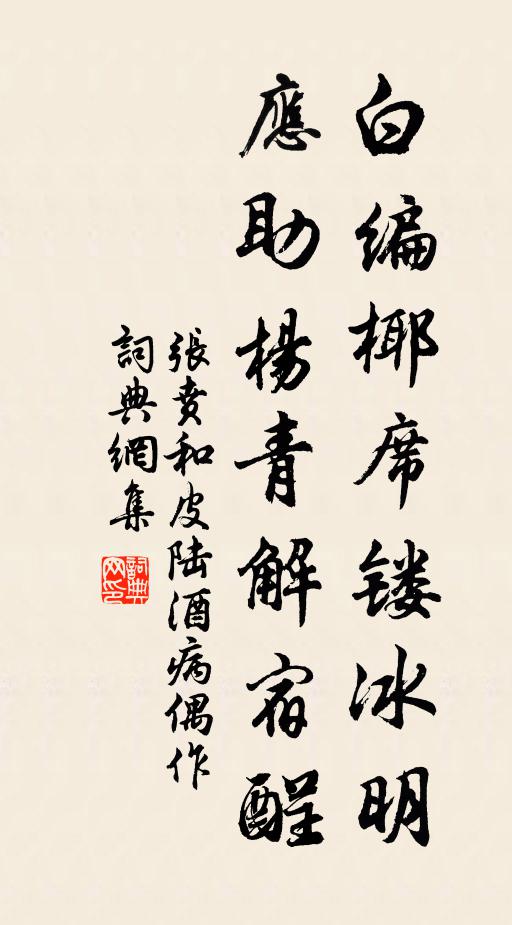 白编椰席镂冰明
應助楊青解宿酲
張賁和皮陆酒病偶作
詞典網集
詞典网印